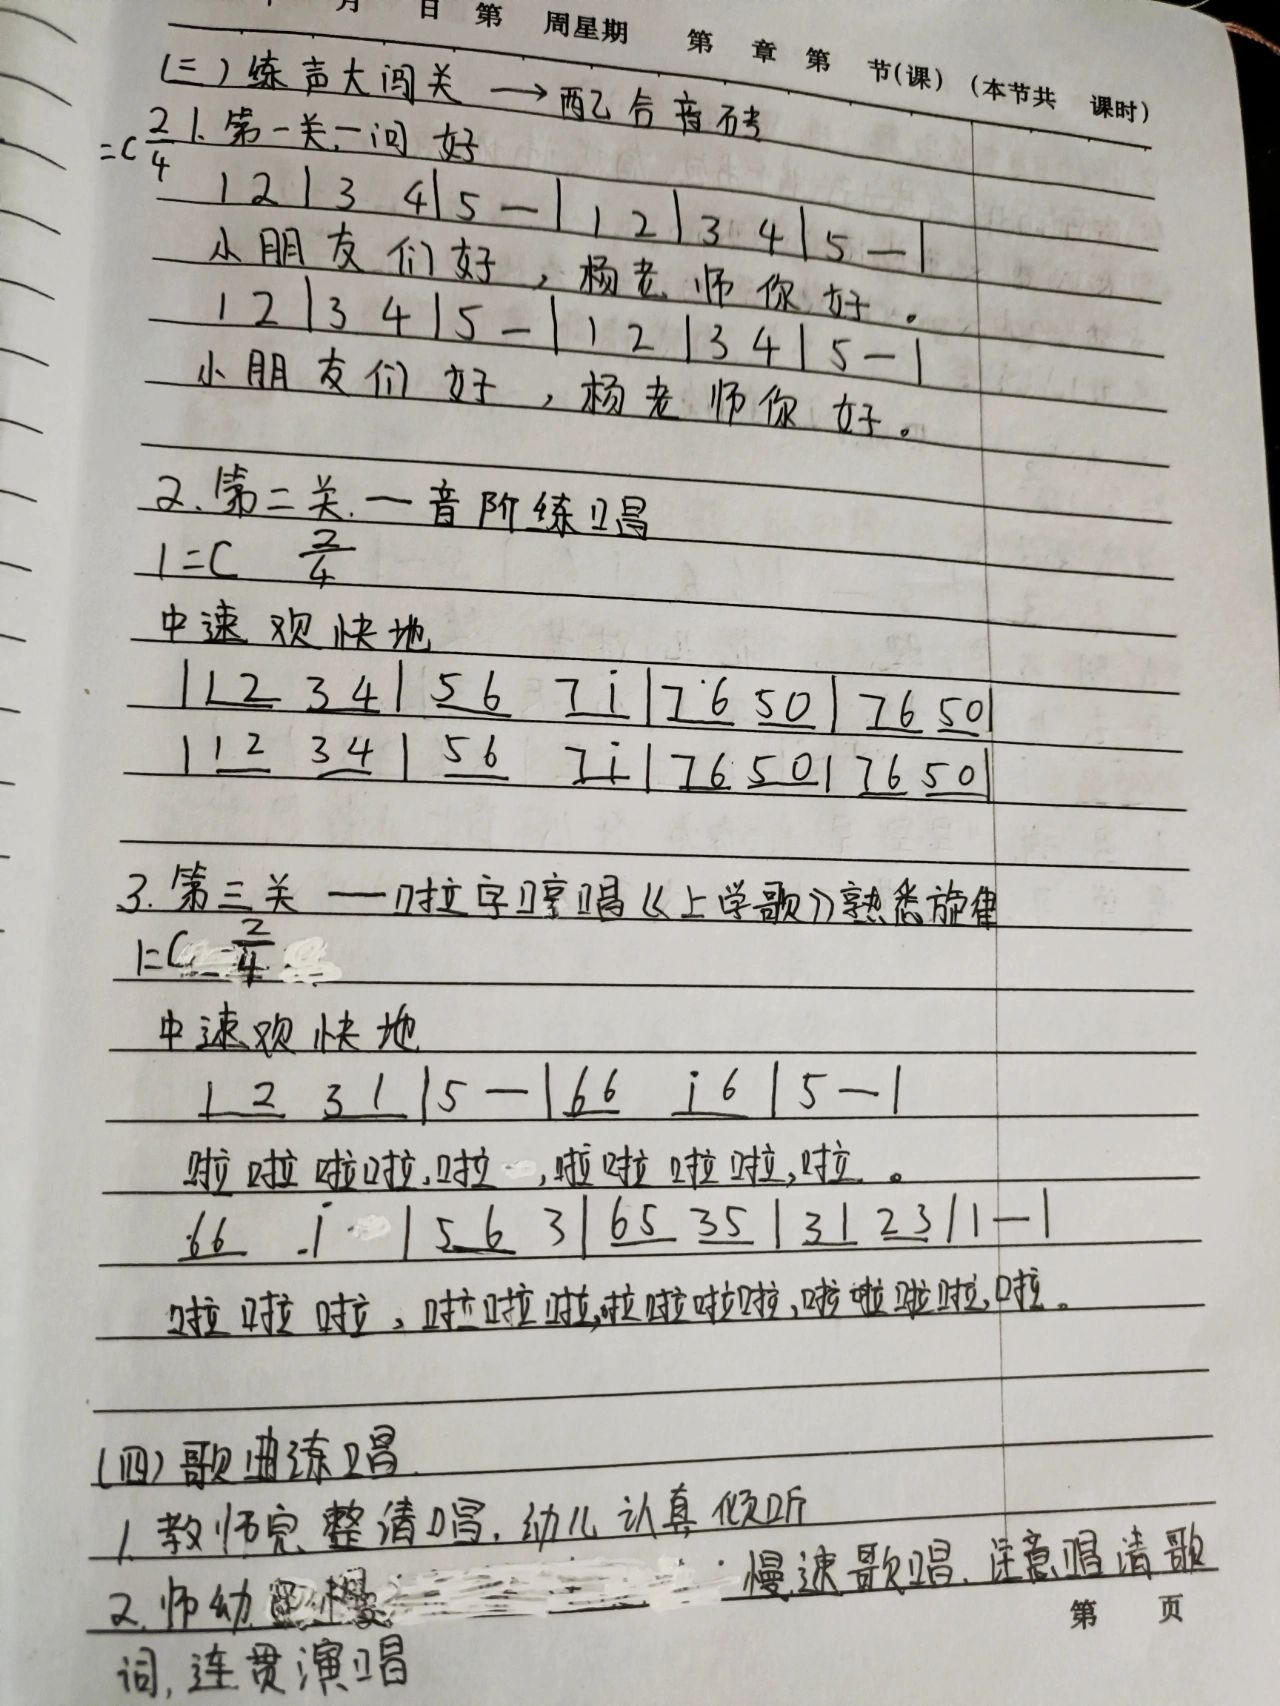 月 日 第 周星期 第 章 第 节(课) (本节共 课时)
(三)练声大闯关 → 配乙合音
=C 2/4 1. 第一关.一问好
1 2 | 3 4 | 5 — | 1 2 | 3 4 | 5 — |
小朋友们好，杨老师你好。
1 2 | 3 4 | 5 — | 1 2 | 3 4 | 5 — |
小朋友们好，杨老师你好。
2. 第二关.一音阶练唱
1=C 2/4
中速 欢快地
| 12 34 | 56 7i | 76 50 | 76 50 |
| 12 34 | 56 7i | 76 50 | 76 50 |
3. 第三关 —啦字哼唱《上学歌》熟悉旋律
1=C 2/4
中速欢快地
1 2 3 1 | 5 — | 66 i6 | 5 — |
啦啦啦啦,啦,啦啦啦啦,啦。
66 i | 56 3 | 65 35 | 31 23 | 1 — |
啦啦啦，啦啦啦,啦啦啦啦,啦啦啦啦,啦。
(四)歌曲练唱
1. 教师完整清唱.幼儿认真倾听
2. 师幼 慢速歌唱.注意唱清歌
第 页
词,连贯演唱